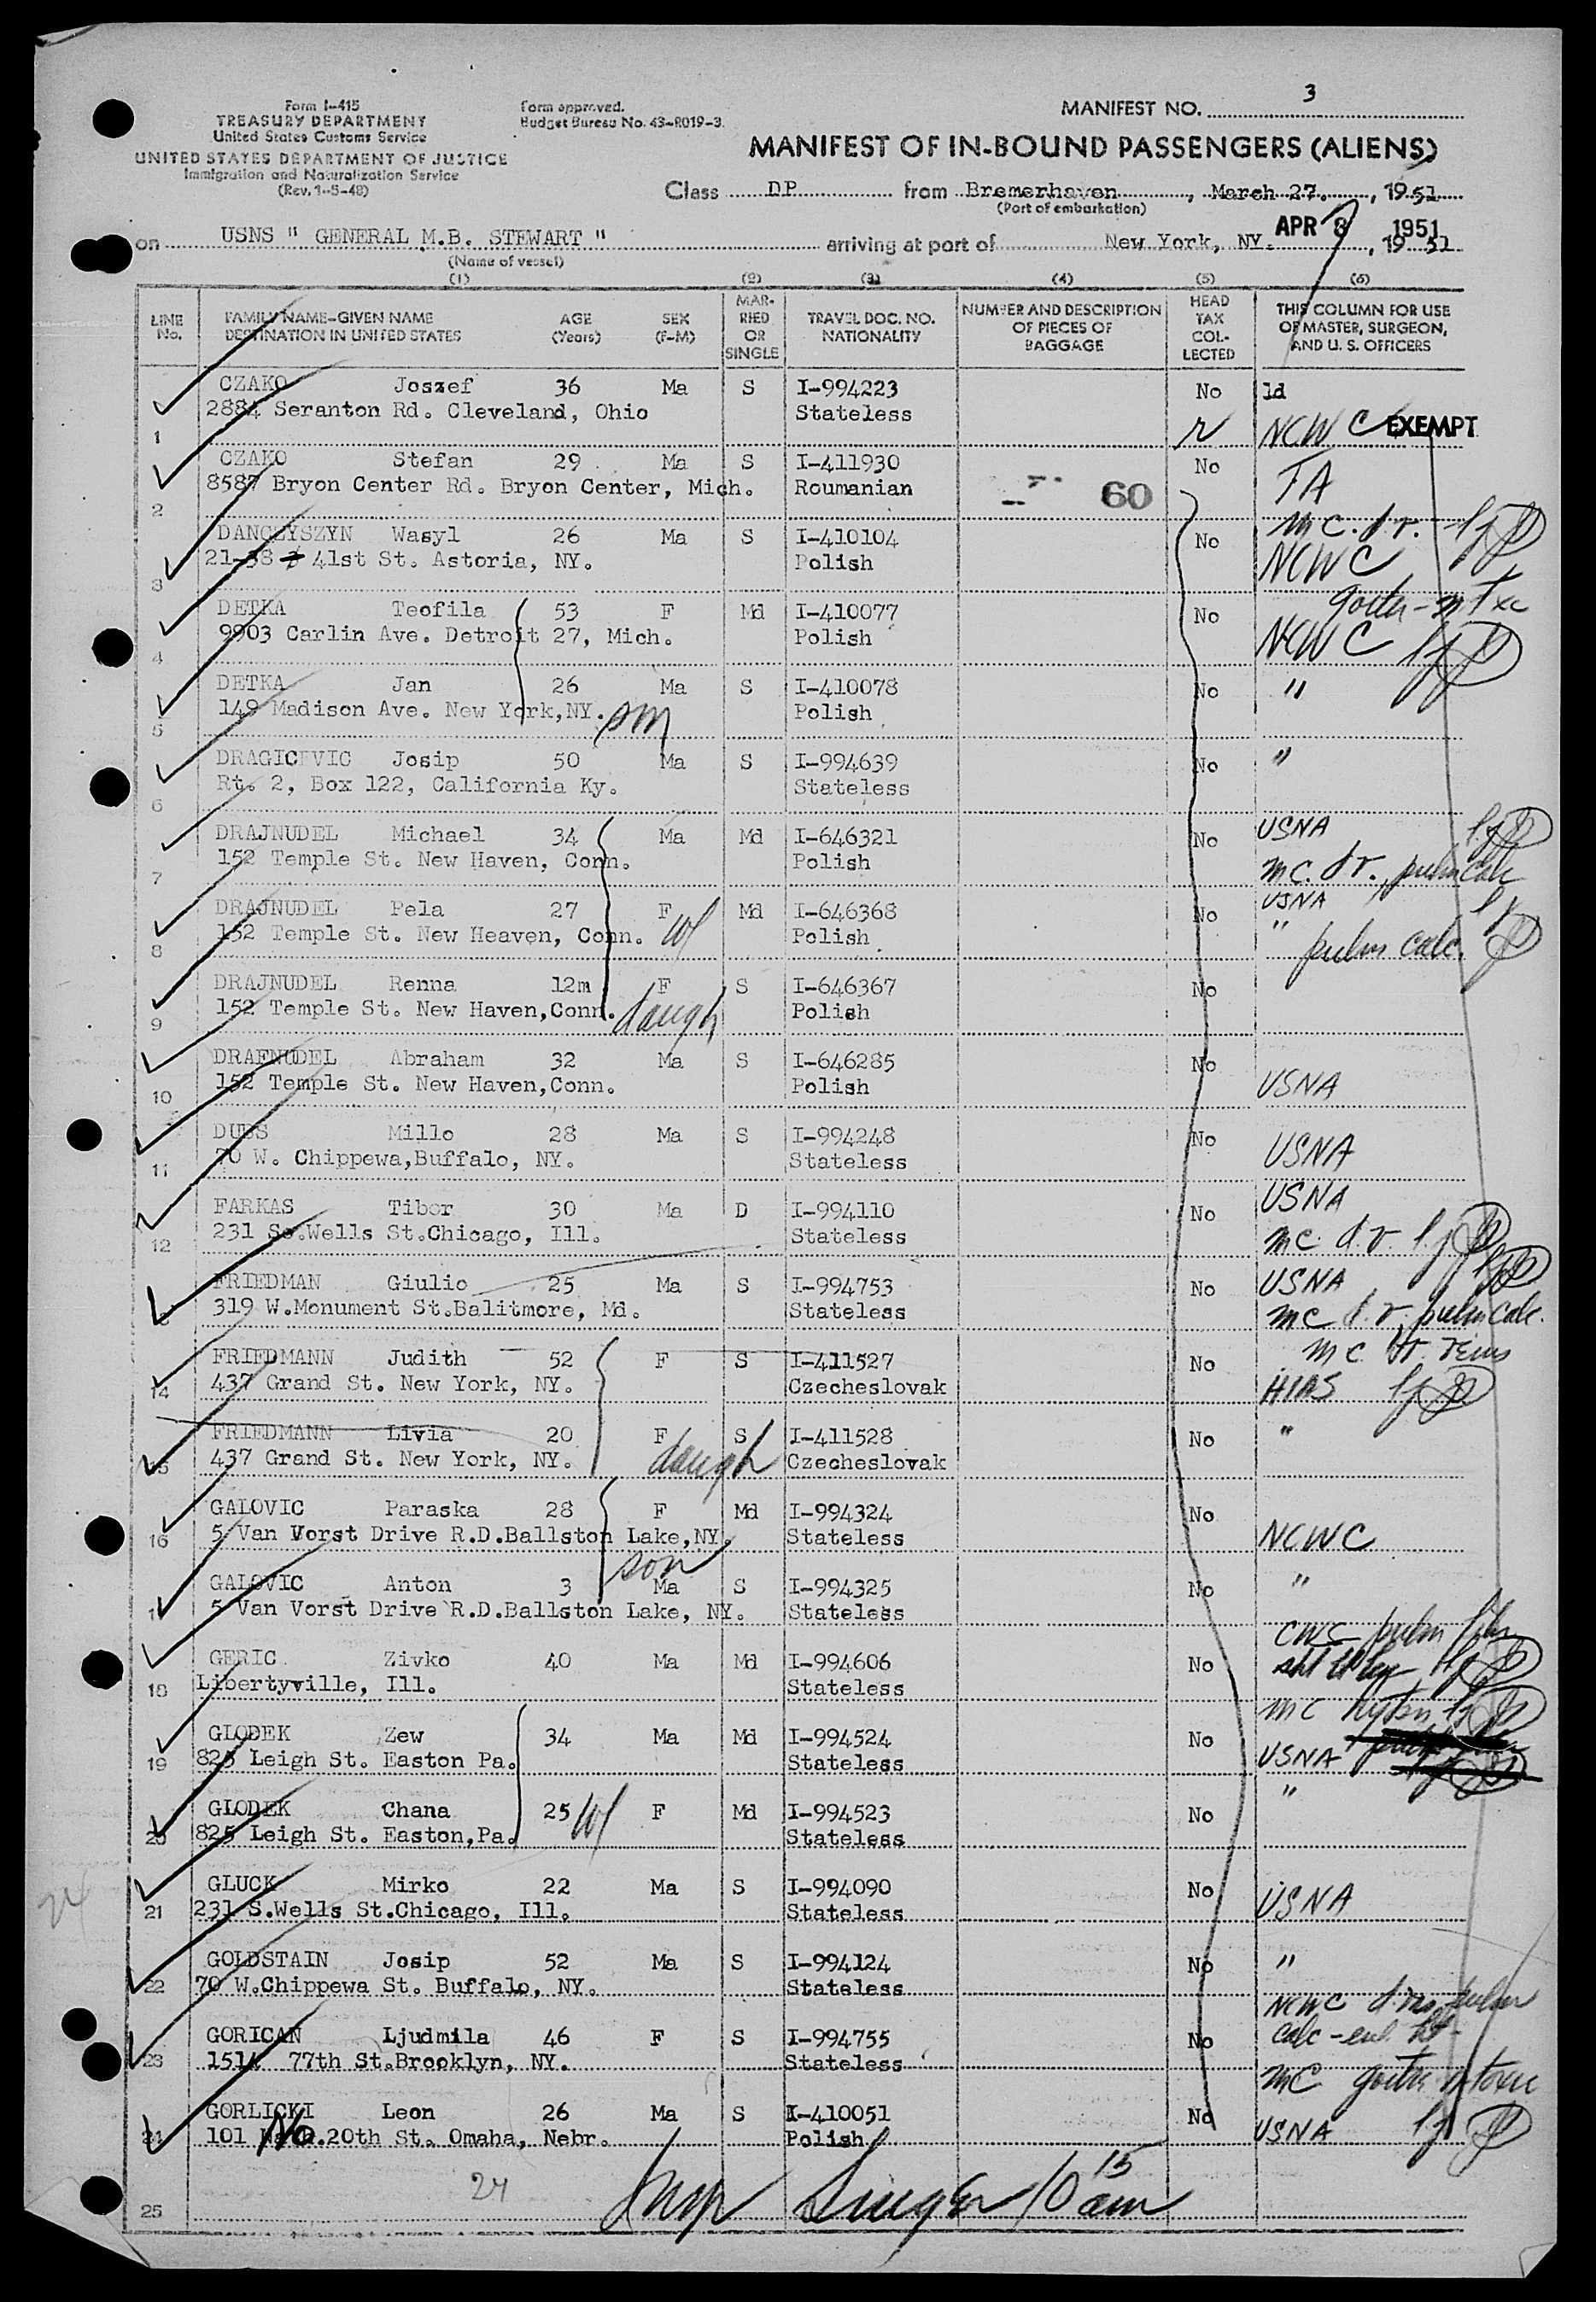 Form I-415
TREASURY DEPARTMENT
United States Customs Service
UNITED STATES DEPARTMENT OF JUSTICE
Immigration and Naturalization Service
(Rev. 1-5-48)
Form approved.
Budget Bureau No. 43-R019-3.
MANIFEST NO. 3
MANIFEST OF IN-BOUND PASSENGERS (ALIENS)
Class DP from Bremerhaven, March 27., 1951
(Port of embarkation)
on USNS " GENERAL M.B. STEWART " arriving at port of New York, NY. APR 8 1951, 1951
(Name of vessel)
(1) (2) (3) (4) (5) (6)
LINE No. FAMILY NAME-GIVEN NAME DESTINATION IN UNITED STATES AGE (Years) SEX (F-M) MARRIED OR SINGLE TRAVEL DOC. NO. NATIONALITY NUMBER AND DESCRIPTION OF PIECES OF BAGGAGE HEAD TAX COLLECTED THIS COLUMN FOR USE OF MASTER, SURGEON, AND U. S. OFFICERS
CZAKO Joszef 36 Ma S I-994223 No ld
2884 Seranton Rd. Cleveland, Ohio Stateless
1 NCWC EXEMPT
CZAKO Stefan 29 Ma S I-411930 No
8587 Bryon Center Rd. Bryon Center, Mich. Roumanian 60 TA
2
DANCZYSZYN Wasyl 26 Ma S I-410104 No mc. d.r.
21-38 41st St. Astoria, NY. Polish NCWC
3
DETKA Teofila 53 F Md I-410077 No
9903 Carlin Ave. Detroit 27, Mich. Polish NCWC
4
DETKA Jan 26 Ma S I-410078 No "
149 Madison Ave. New York,NY. Polish
5
DRAGICEVIC Josip 50 Ma S I-994639 No "
Rt. 2, Box 122, California Ky. Stateless
6
DRAJNUDEL Michael 34 Ma Md I-646321 No USNA
152 Temple St. New Haven, Conn. Polish mc. dr., pulm calc
7
DRAJNUDEL Pela 27 F W Md I-646368 No USNA
152 Temple St. New Heaven, Conn. Polish " pulm calc.
8
DRAJNUDEL Renna 12m F S I-646367 No
152 Temple St. New Haven,Conn. daugh Polish
9
DRAFNUDEL Abraham 32 Ma S I-646285 No
152 Temple St. New Haven,Conn. Polish USNA
10
DUBS Millo 28 Ma S I-994248 No
70 W. Chippewa,Buffalo, NY. Stateless USNA
11
FARKAS Tibor 30 Ma D I-994110 No USNA
231 So.Wells St.Chicago, Ill. Stateless mc. d.r.
12
FRIEDMAN Giulio 25 Ma S I-994753 No USNA
319 W.Monument St.Balitmore, Md. Stateless mc d.r, pulm calc.
FRIEDMANN Judith 52 F S I-411527 No
437 Grand St. New York, NY. Czecheslovak HIAS
14
FRIEDMANN Livia 20 F S I-411528 No "
437 Grand St. New York, NY. daugh Czecheslovak
15
GALOVIC Paraska 28 F Md I-994324 No
5 Van Vorst Drive R.D.Ballston Lake,NY. Stateless NCWC
16
son
GALOVIC Anton 3 Ma S I-994325 No "
5 Van Vorst Drive R.D.Ballston Lake, NY. Stateless
GERIC Zivko 40 Ma Md I-994606 No
Libertyville, Ill. Stateless
18
GLODEK Zew 34 Ma Md I-994524 No
825 Leigh St. Easton Pa. Stateless USNA
19
GLODEK Chana 25 W F Md I-994523 No "
825 Leigh St. Easton,Pa. Stateless
20
GLUCK Mirko 22 Ma S I-994090 No
231 S.Wells St.Chicago, Ill. Stateless USNA
21
GOLDSTAIN Josip 52 Ma S I-994124 No "
70 W.Chippewa St. Buffalo, NY. Stateless
22
GORICAN Ljudmila 46 F S I-994755 No
1514 77th St.Brooklyn, NY. Stateless
23
GORLICKI Leon 26 Ma S I-410051 No
101 No.20th St. Omaha, Nebr. Polish USNA
24
24
25
Insp Singer 10 15 am